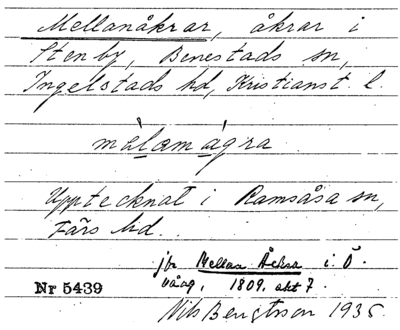 Mellanåkrar, åkrar i
Stenby, Benestads sn,
Ingelstads hd, Kristianst. l.
mèlamágra
Upptecknat i Ramsåsa sn,
Färs hd.
jfr Mellan Åkra i Ö.
Vång, 1809. akt 7.
Nr 5439
Nils Bengtsson 1935